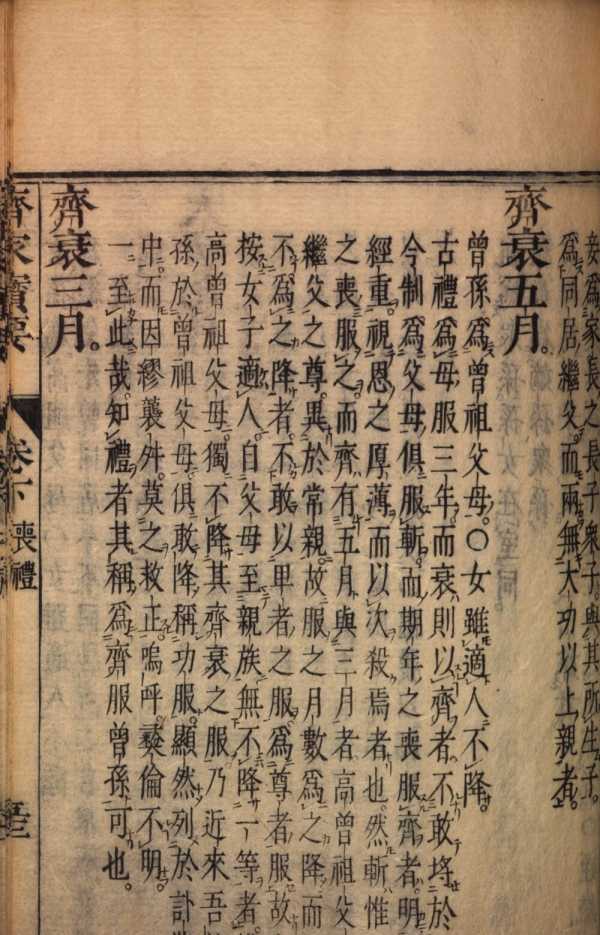 妾爲家長之長子衆子與其所生子。
爲同居繼父而兩無大功以上親者。
齊衰五月。
曾孫爲曾祖父母。〇女雖適人不降。
古禮爲母服三年。而衰則以齊者。不敢埒於
今制爲父母俱服斬。而期年之喪服齊者。明
經重。視恩之厚薄。而以次殺焉者也。然斬惟
之喪服之。而齊有五月與三月者。高曾祖父
繼父之尊。異於常親。故服之月數爲之降。而
不爲之降者。不敢以卑者之服。爲尊者服。故
按女子適人。自父母至親族。無不降一等者。
高曾祖父母。獨不降其齊衰之服。乃近來吾
孫於曾祖父母。俱敢降稱功服。顯然列於訃
中。而因繆襲舛。莫之救正。嗚呼。彜倫不明。
一至此哉。知禮者其稱爲齊服曾孫可也。
齊衰三月。
齊家寶要 卷下 喪禮